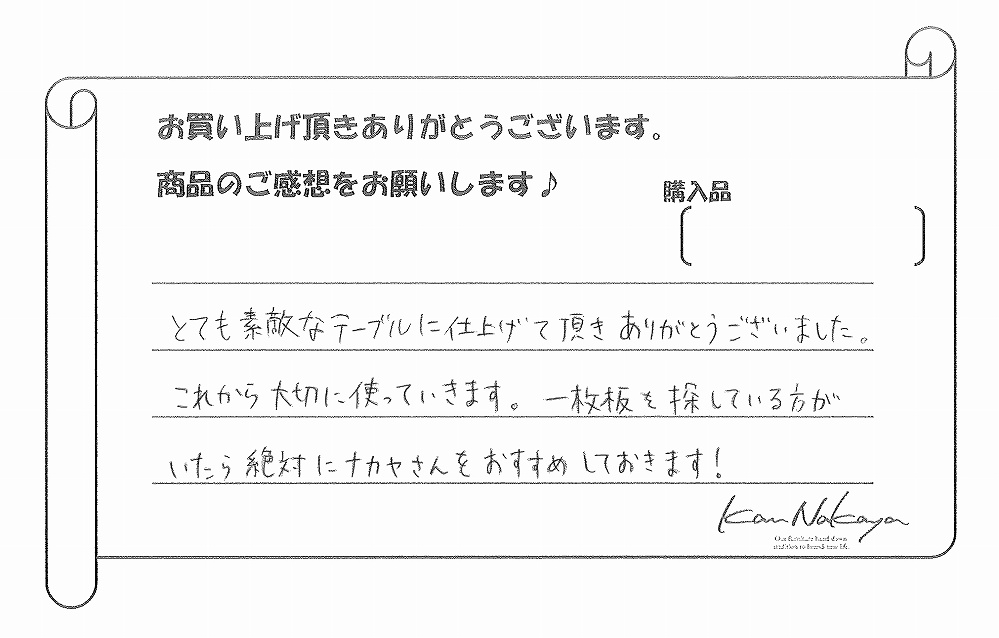 お買い上げ頂きありがとうございます。
商品のご感想をお願いします♪
購入品
とても素敵なテーブルに仕上げて頂きありがとうございました。
これから大切に使っていきます。一枚板を探している方が
いたら絶対にナカヤさんをおすすめしておきます!
Kan Nakaya
Our furniture hand down
tradition to brand-new life.